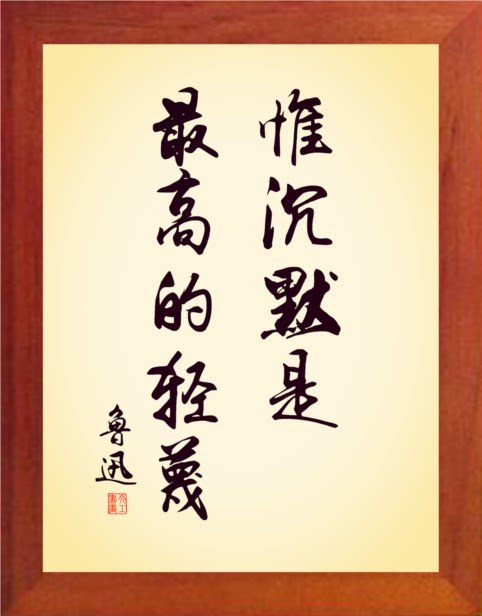 惟沉默是
最高的轻蔑
鲁迅